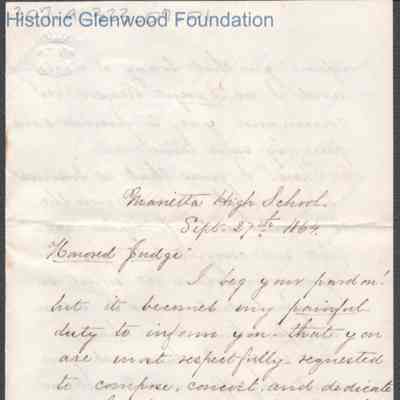 Historic Glenwood Foundation
Marietta High School.
Sept. 27th 1864.
Honored Judge
I beg your pardon!
but it becomes my painful
duty to inform you that you
are most respectfully requested
to compose, concoct and dedicate